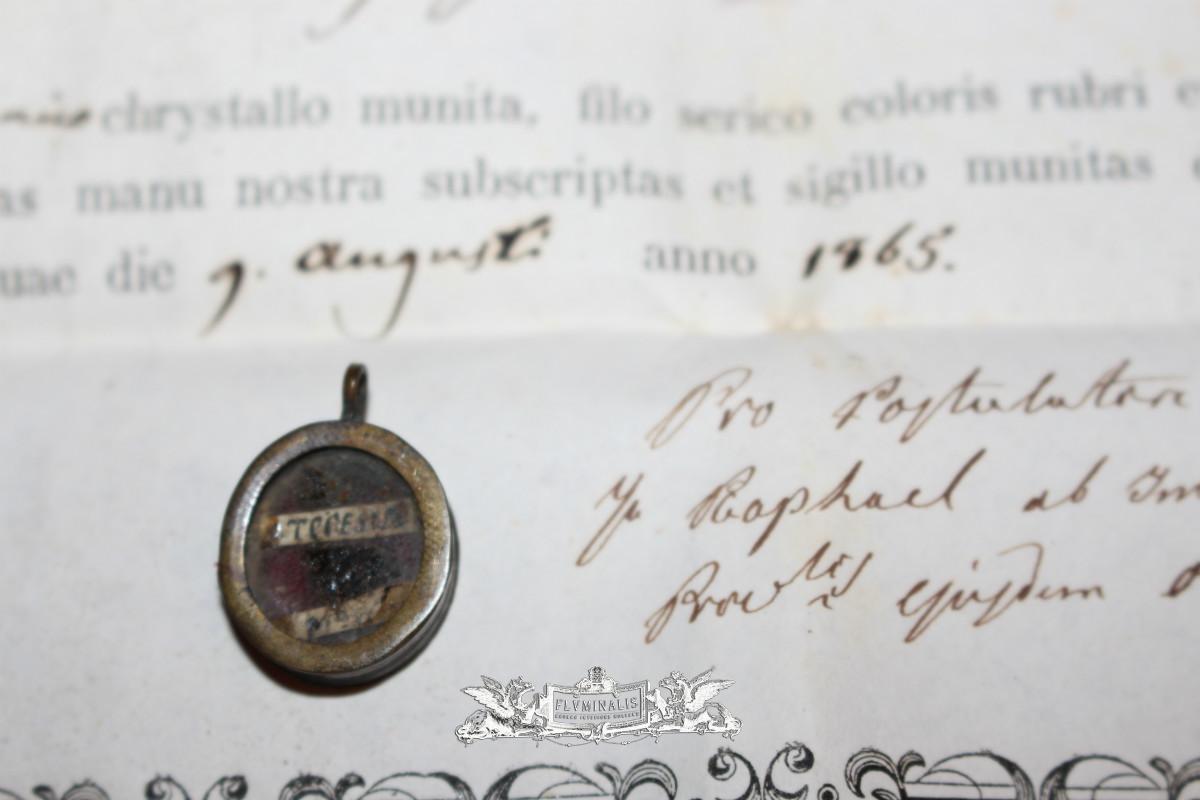 chrystallo munita, filo serico coloris rubri
as manu nostra subscriptas et sigillo munitas
uae die 9. augusti anno 1865.
Pro Postulatore
Raphael ab Im
ejusdem
TERESIAE
FLVMINALIS